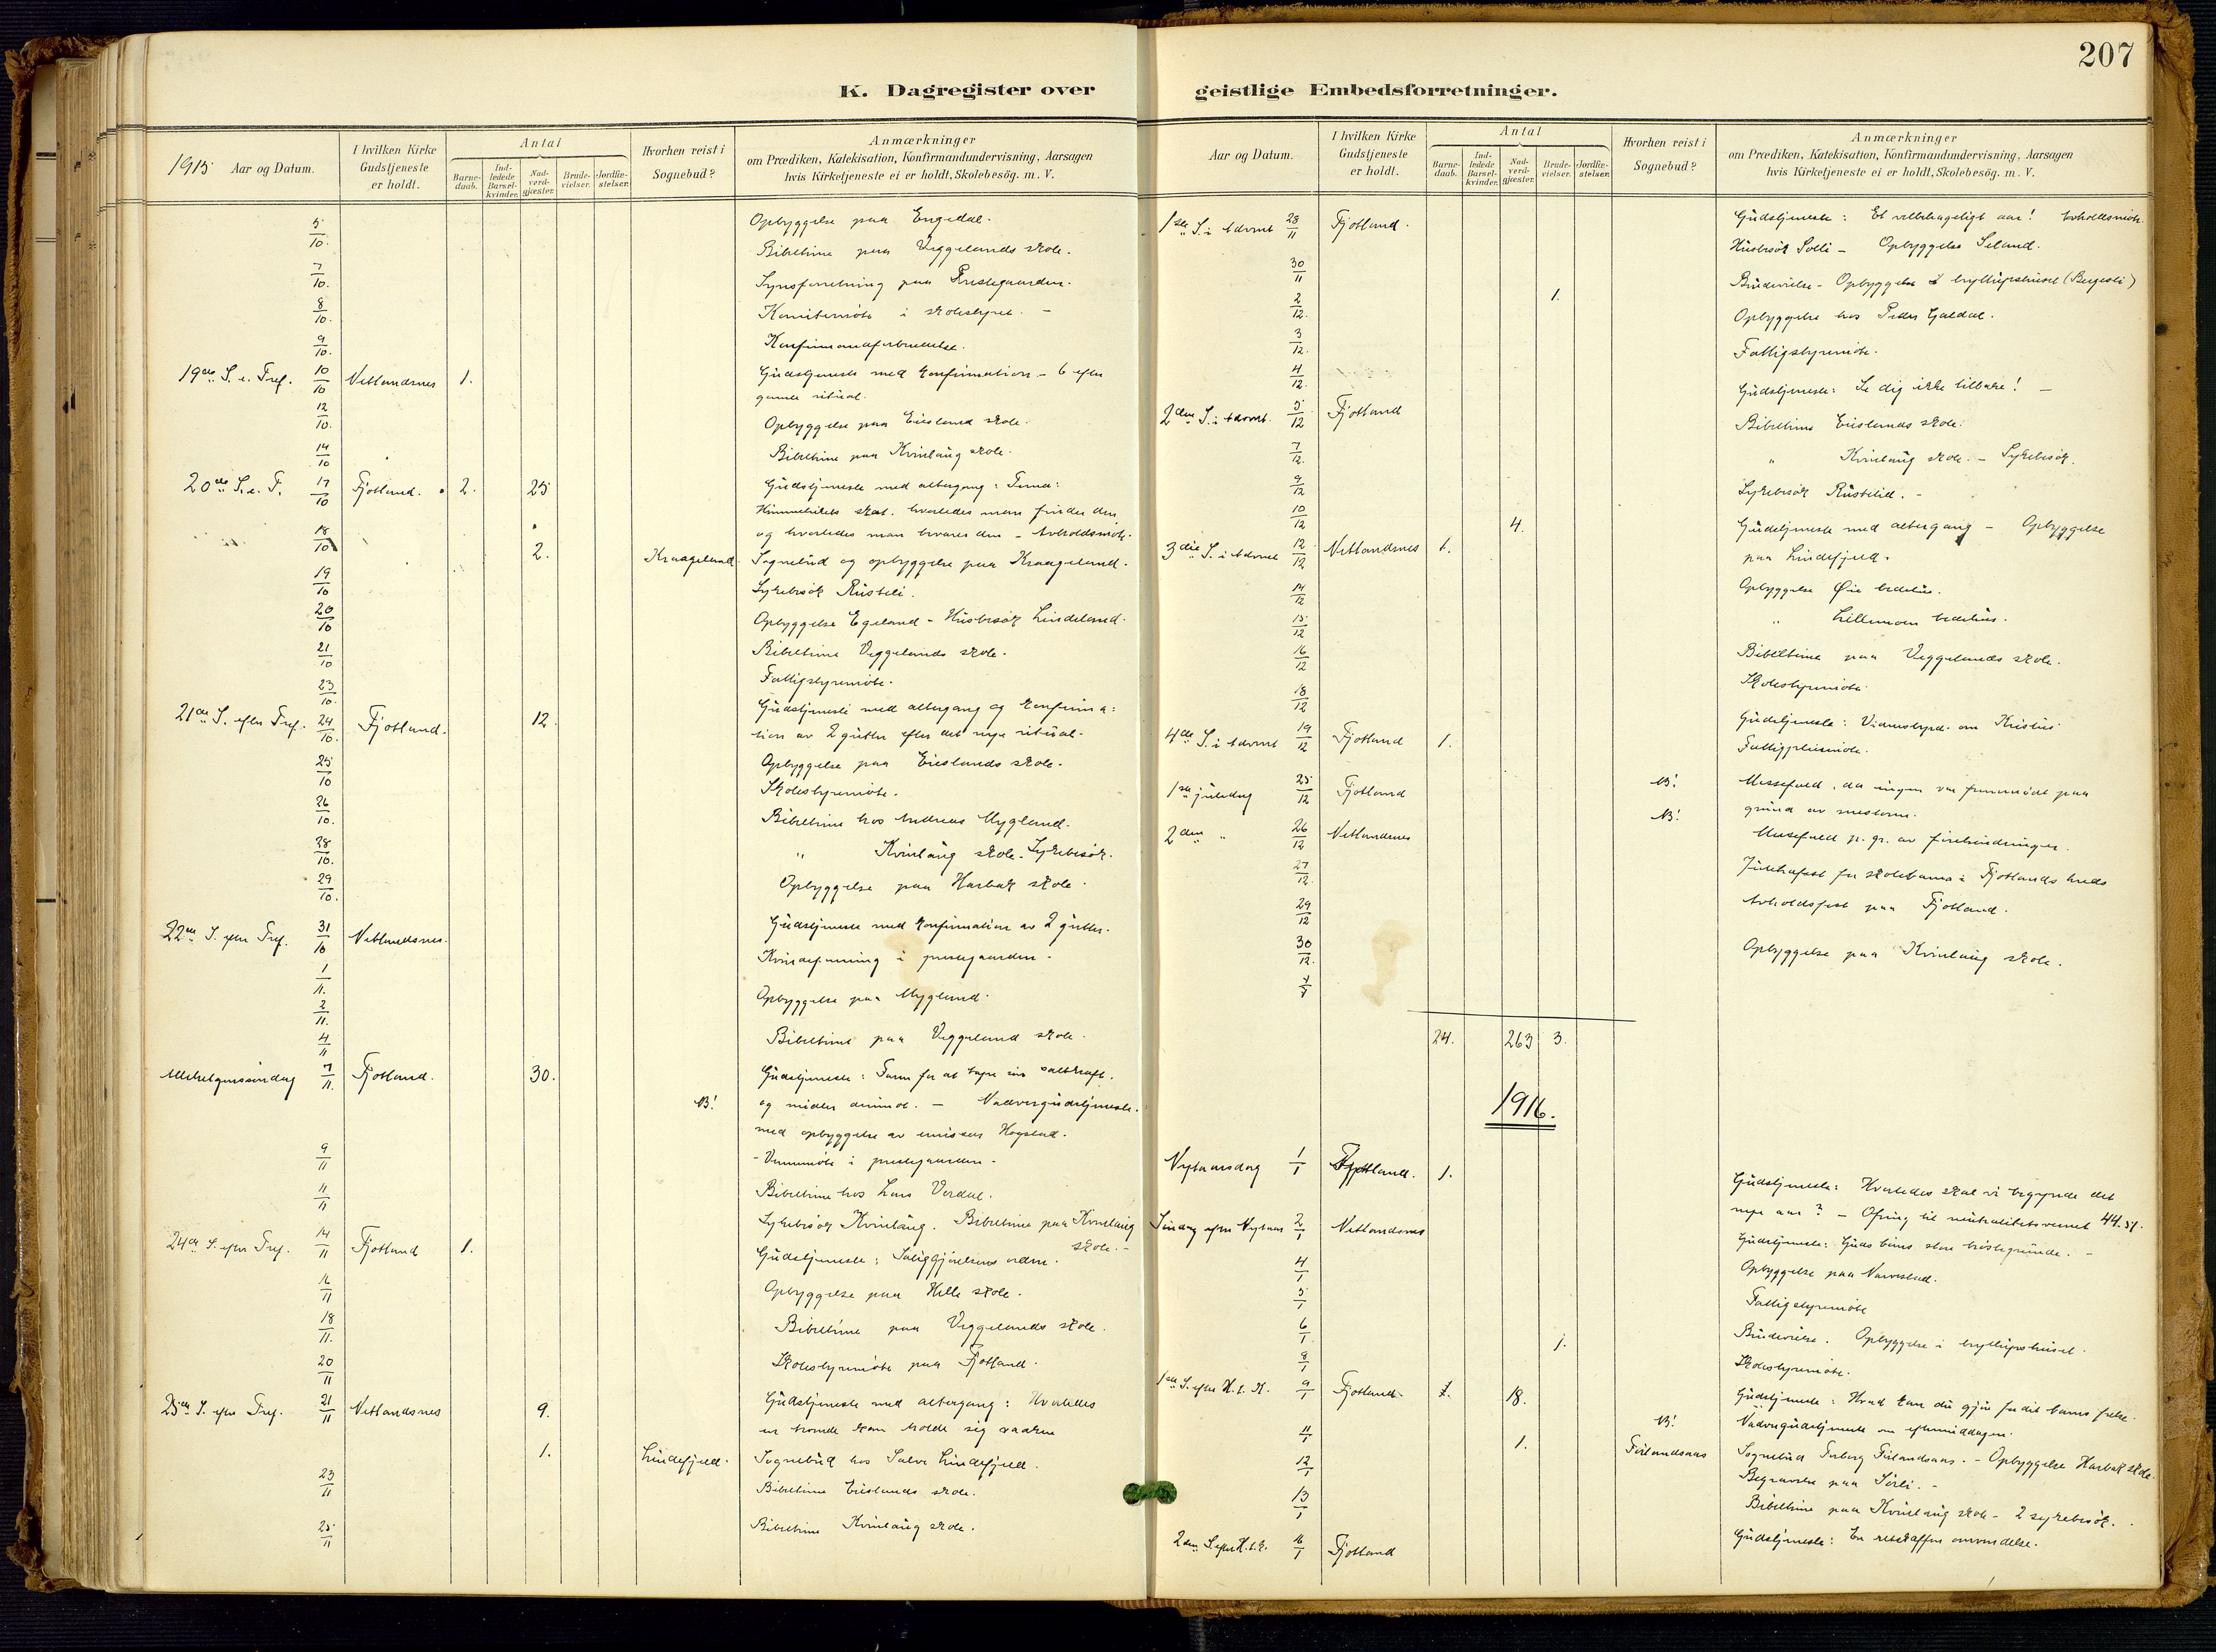 207
K. Dagregister over geistlige Embedsforretninger.
1915 Aar og Datum.
I hvilken Kirke Gudstjeneste er holdt.
Antal
Barne-daab.
Ind-ledede Barsel-kvinder.
Nad-verd-gjæster.
Brude-vielser.
Jordfæ-stelser.
Hvorhen reist i Sognebud?
Anmærkninger
om Prædiken, Katekisation, Konfirmandundervisning, Aarsagen
hvis Kirketjeneste ei er holdt, Skolebesøg. m. V.
5/10. Opbyggelse paa Engedal.
Bibeltime paa Veggelands skole.
7/10. Synsforretning paa Prestegaarden.
8/10. Komitemöte i skolestyret. -
9/10.
19de S. e. Tref. 10/10 Netlandsnes 1. Gudstjeneste med konfirmation - 6 efter
gamle ritual.
12/10. Opbyggelse paa Eieland skole.
14/10 Bibeltime paa Kvinlaug skole.
20de S. e. T. 17/10 Fjotland. 2. 25 Gudstjeneste med altergang: Tema:
Himmelrikets skat. hvorledes man finder den
og hvorledes man bevarer den - Avholdsmöte.
18/10 2. Kraageland. Sognebud og opbyggelse paa Kraageland.
19/10 Sykebesök Rusteli.
20/10 Opbyggelse Egeland - Husbesök Lindeland.
21/10 Bibeltime Veggelands skole.
23/10. Fattigstyremöte.
21de S. efter Tref. 24/10. Fjotland. 12. Gudstjeneste med altergang og konfirma:
tion av 2 gutter efter det nye ritual.
25/10 Opbyggelse paa Eieslands skole.
Skolestyremöte.
26/10. Bibeltime hos Andreas Mygland.
28/10. " Kvinlaug skole. Sykebesök.
29/10. Opbyggelse paa Harbak skole.
22de S. efter Tref. 31/10 Netlandsnes. Gudstjeneste med konfirmation av 2 gutter.
Kvindeforening i prestegaarden.
1/11.
2/11. Opbyggelse paa Mygland.
4/11 Bibeltime paa Veggeland skole.
Allehelgenssöndag 7/11. Fjotland. 30. Gudstjeneste: Faren for at tape sin saltkraft.
NB! og midler derimot. - Nadverdgudstjeneste.
med opbyggelse av emissær Hogstad.
9/11 - Vennemöte i prestegaarden.
11/11 Bibeltime hos Lars Verdal.
Sykebesög Kvinlaug. Bibeltime paa Kvinlaug
skole. -
24de S. efter Tref. 14/11 Fjotland 1. Gudstjeneste: Saliggjörelsens orden.
16/11 Opbyggelse paa Helle skole.
18/11. Bibeltime paa Veggelands skole.
20/11 Skolestyremöte paa Fjotland.
25de S. efter Tref. 21/11 Netlandsnes 9. Gudstjeneste med altergang: Hvorledes
en troende kan holde sig vaaken
1. Lindefjeld. Sognebud hos Salve Lindefjeld.
23/11 Bibeltime Eieslands skole.
25/11 Bibeltime Kvinlaug skole.
Aar og Datum.
I hvilken Kirke Gudstjeneste er holdt.
Antal
Barne-daab.
Ind-ledede Barsel-kvinder.
Nad-verd-gjæster.
Brude-vielser.
Jordfæ-stelser.
Hvorhen reist i Sognebud?
Anmærkninger
om Prædiken, Katekisation, Konfirmandundervisning, Aarsagen
hvis Kirketjeneste ei er holdt, Skolebesøg. m. V.
1ste S. i Advent 28/11 Fjotland. Gudstjeneste: Et velbehageligt aar! Avholdsmöte.
30/11 Husbesök Solli - Opbyggelse Seland.
2/12. 1. Brudevielse - Opbyggelse i bryllupshuset (Bergesli)
3/12. Opbyggelse hos Peder Galdal.
4/12. Fattigstyremöte.
2den S. i Advent. 5/12 Fjotland Gudstjeneste: Se dig ikke tilbake! -
7/12. Bibeltime Eieslands skole.
9/12 " Kvinlaug skole. - Sykebesök.
10/12 Sykebesök Rustelid. -
3die S. i Advent 12/12 Netlandsnes 1. 4. Gudstjeneste med altergang - Opbyggelse
paa Lindefjeld.
14/12 Opbyggelse Öie bedehus.
15/12 " Lillemoen bedehus.
16/12 Bibeltime paa Veggelands skole.
18/12 Skolestyremöte.
4de S. i Advent 19/12 Fjotland 1. Gudstjeneste: Vidnesbyrd om Kristus
1ste juledag 25/12 Fjotland NB! Messefald, da ingen var fremmöt paa
grund av
2den " 26/12 Netlandsnes NB! Messefald p. gr. av
27/12. Juletræfest for skolebarna i Fjotlands
29/12 Avholdsfest paa Fjotland.
30/12. Opbyggelse paa Kvinlaug skole.
24. 263 3.
1916.
Nytaarsdag 1/1 Fjotland. 1. Gudstjeneste: Hvorledes skal vi begynde det
nye aar? - Ofring til neutralitetsvernet 44.51.
Söndag efter Nytaar 2/1 Netlandsnes Gudstjeneste: Guds barns store tröstegrunde. -
4/1 Opbyggelse paa Narvestad.
5/1 Fattigstyremöte
6/1 1. Brudevielse. Opbyggelse i bryllupshuset.
8/1 Skolestyremöte.
1ste S. efter H. t. K. 9/1 Fjotland. 1. 18. Gudstjeneste: Hvad kan du gjöre for dit barns frelse.
NB! Nadverdgudstjeneste om eftermiddagen.
11/1 1. Förlandsaas Sognebud Förlandsaas. - Opbyggelse Harbak skole.
12/1 Begravelse paa Sörli. -
13/1 Bibeltime paa Kvinlaug skole - 2 sykebesök.
2den S. efter H. t. K. 16/1 Fjotland Gudstjeneste: En retskaffen omvendelse.